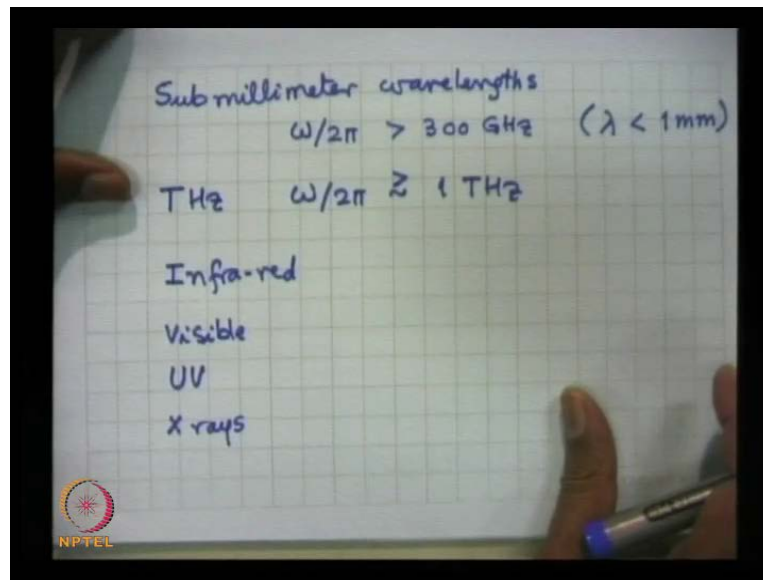 Submillimeter wavelengths
ω/2π > 300 GHz (λ < 1mm)
THz ω/2π ≳ 1 THz
Infra-red
Visible
UV
X rays
NPTEL